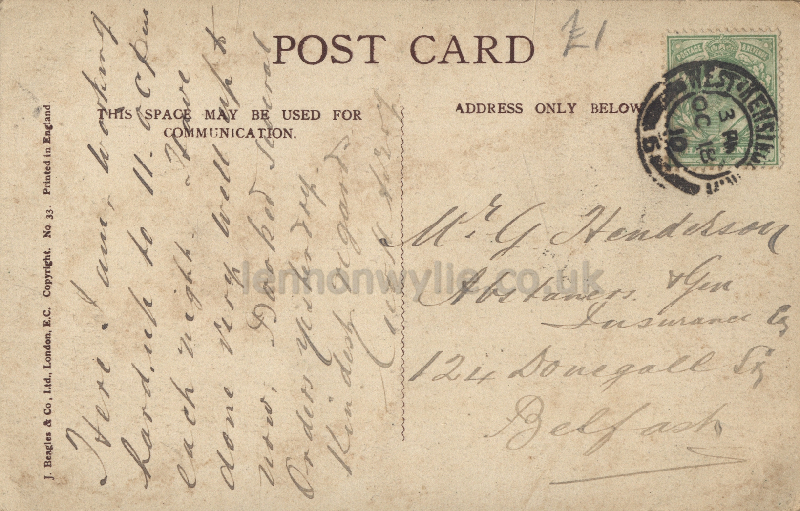 POST CARD
£1
THIS SPACE MAY BE USED FOR
COMMUNICATION.
ADDRESS ONLY BELOW
J. Beagles & Co., Ltd., London, E.C. Copyright. No. 33. Printed in England
Here I am, working
hard, up to 11. ocpm
each night. Have
done very well up to
now. Booked several
Orders yesterday.
Kindest regards
POSTAGE
3 PM
OC 18
10
Mr. G Henderson
Abstainers & Gen
Insurance Co
124 Donegall Sq
Belfast
lennonwylie.co.uk